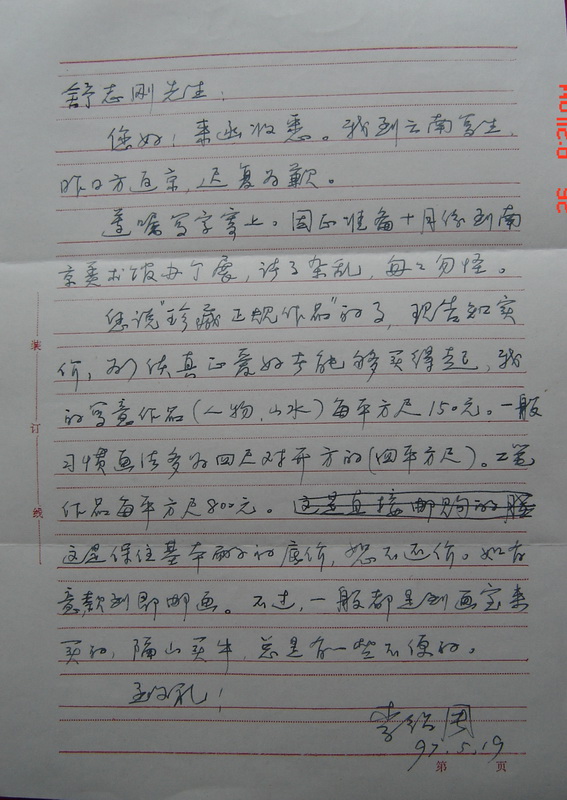 舒志刚先生：
您好！来函收悉。我到云南写生，
昨日方返京，迟复为歉。
遵嘱写字寄上。因正准备十月份到南
京美术馆办个展，诸事杂乱，勿怪。
您说"珍藏正规作品"的事，现告知实
价，为使真正爱好者能够买得起，我
的写意作品（人物、山水）每平方尺150元。一般
习惯画法多为四尺对开方的（四平方尺）。工笔
作品每平方尺800元。这是直接邮购的
这是保住基本的底价，恕不还价。如有
意款到即邮画。不过，一般都是到画室来
买的，隔山买牛，总是有一些不便的。
致礼！
李
97.5.19
装
订
线
第 页